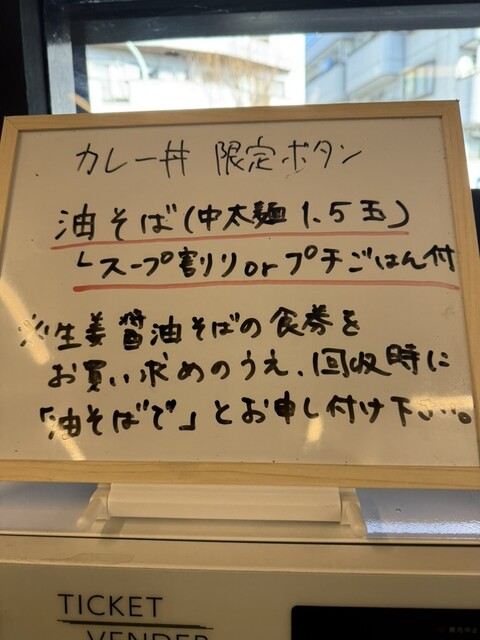 カレー丼 限定ボタン
油そば(中太麺1.5玉)
└スープ割りorプチごはん付
※生姜醤油そばの食券を
お買い求めのうえ、回収時に
「油そばで」とお申し付け下さい。
TICKET
VENDER